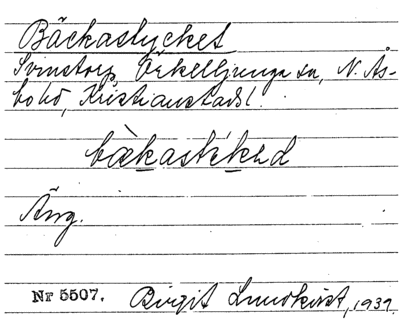 Bäckastycket
Svinstorp, Örkelljunga sn, N. Ås-
bo hd, Kristianstads l.
bækastékəd
Äng.
Nr 5507. Birgit Lundkvist, 1939.